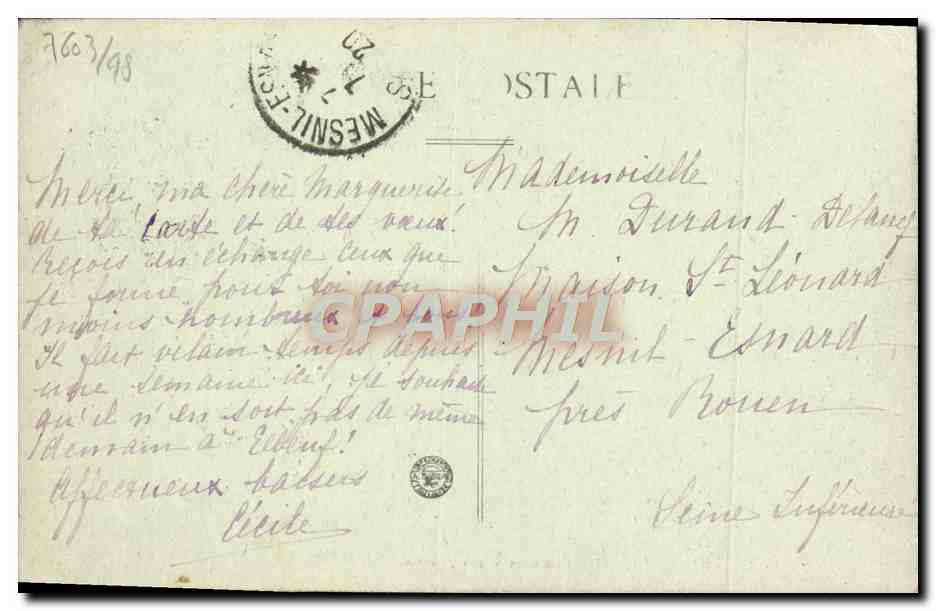 7603/98
MESNIL-ESNARD
7
1
20
E POSTALE
Merci, ma chère Marguerite,
de ta carte et de tes vœux!
Reçois en échange ceux que
je forme pour toi non
moins nombreux
Il fait vilain temps depuis
une semaine ici, je souhaite
qu'il n'en soit pas de même
demain à Elbeuf!
Affectueux baisers
Cécile
Mademoiselle
M. Durand-
Maison St Léonard
Mesnil-Esnard
près Rouen
Seine Inférieure
CPAPHIL